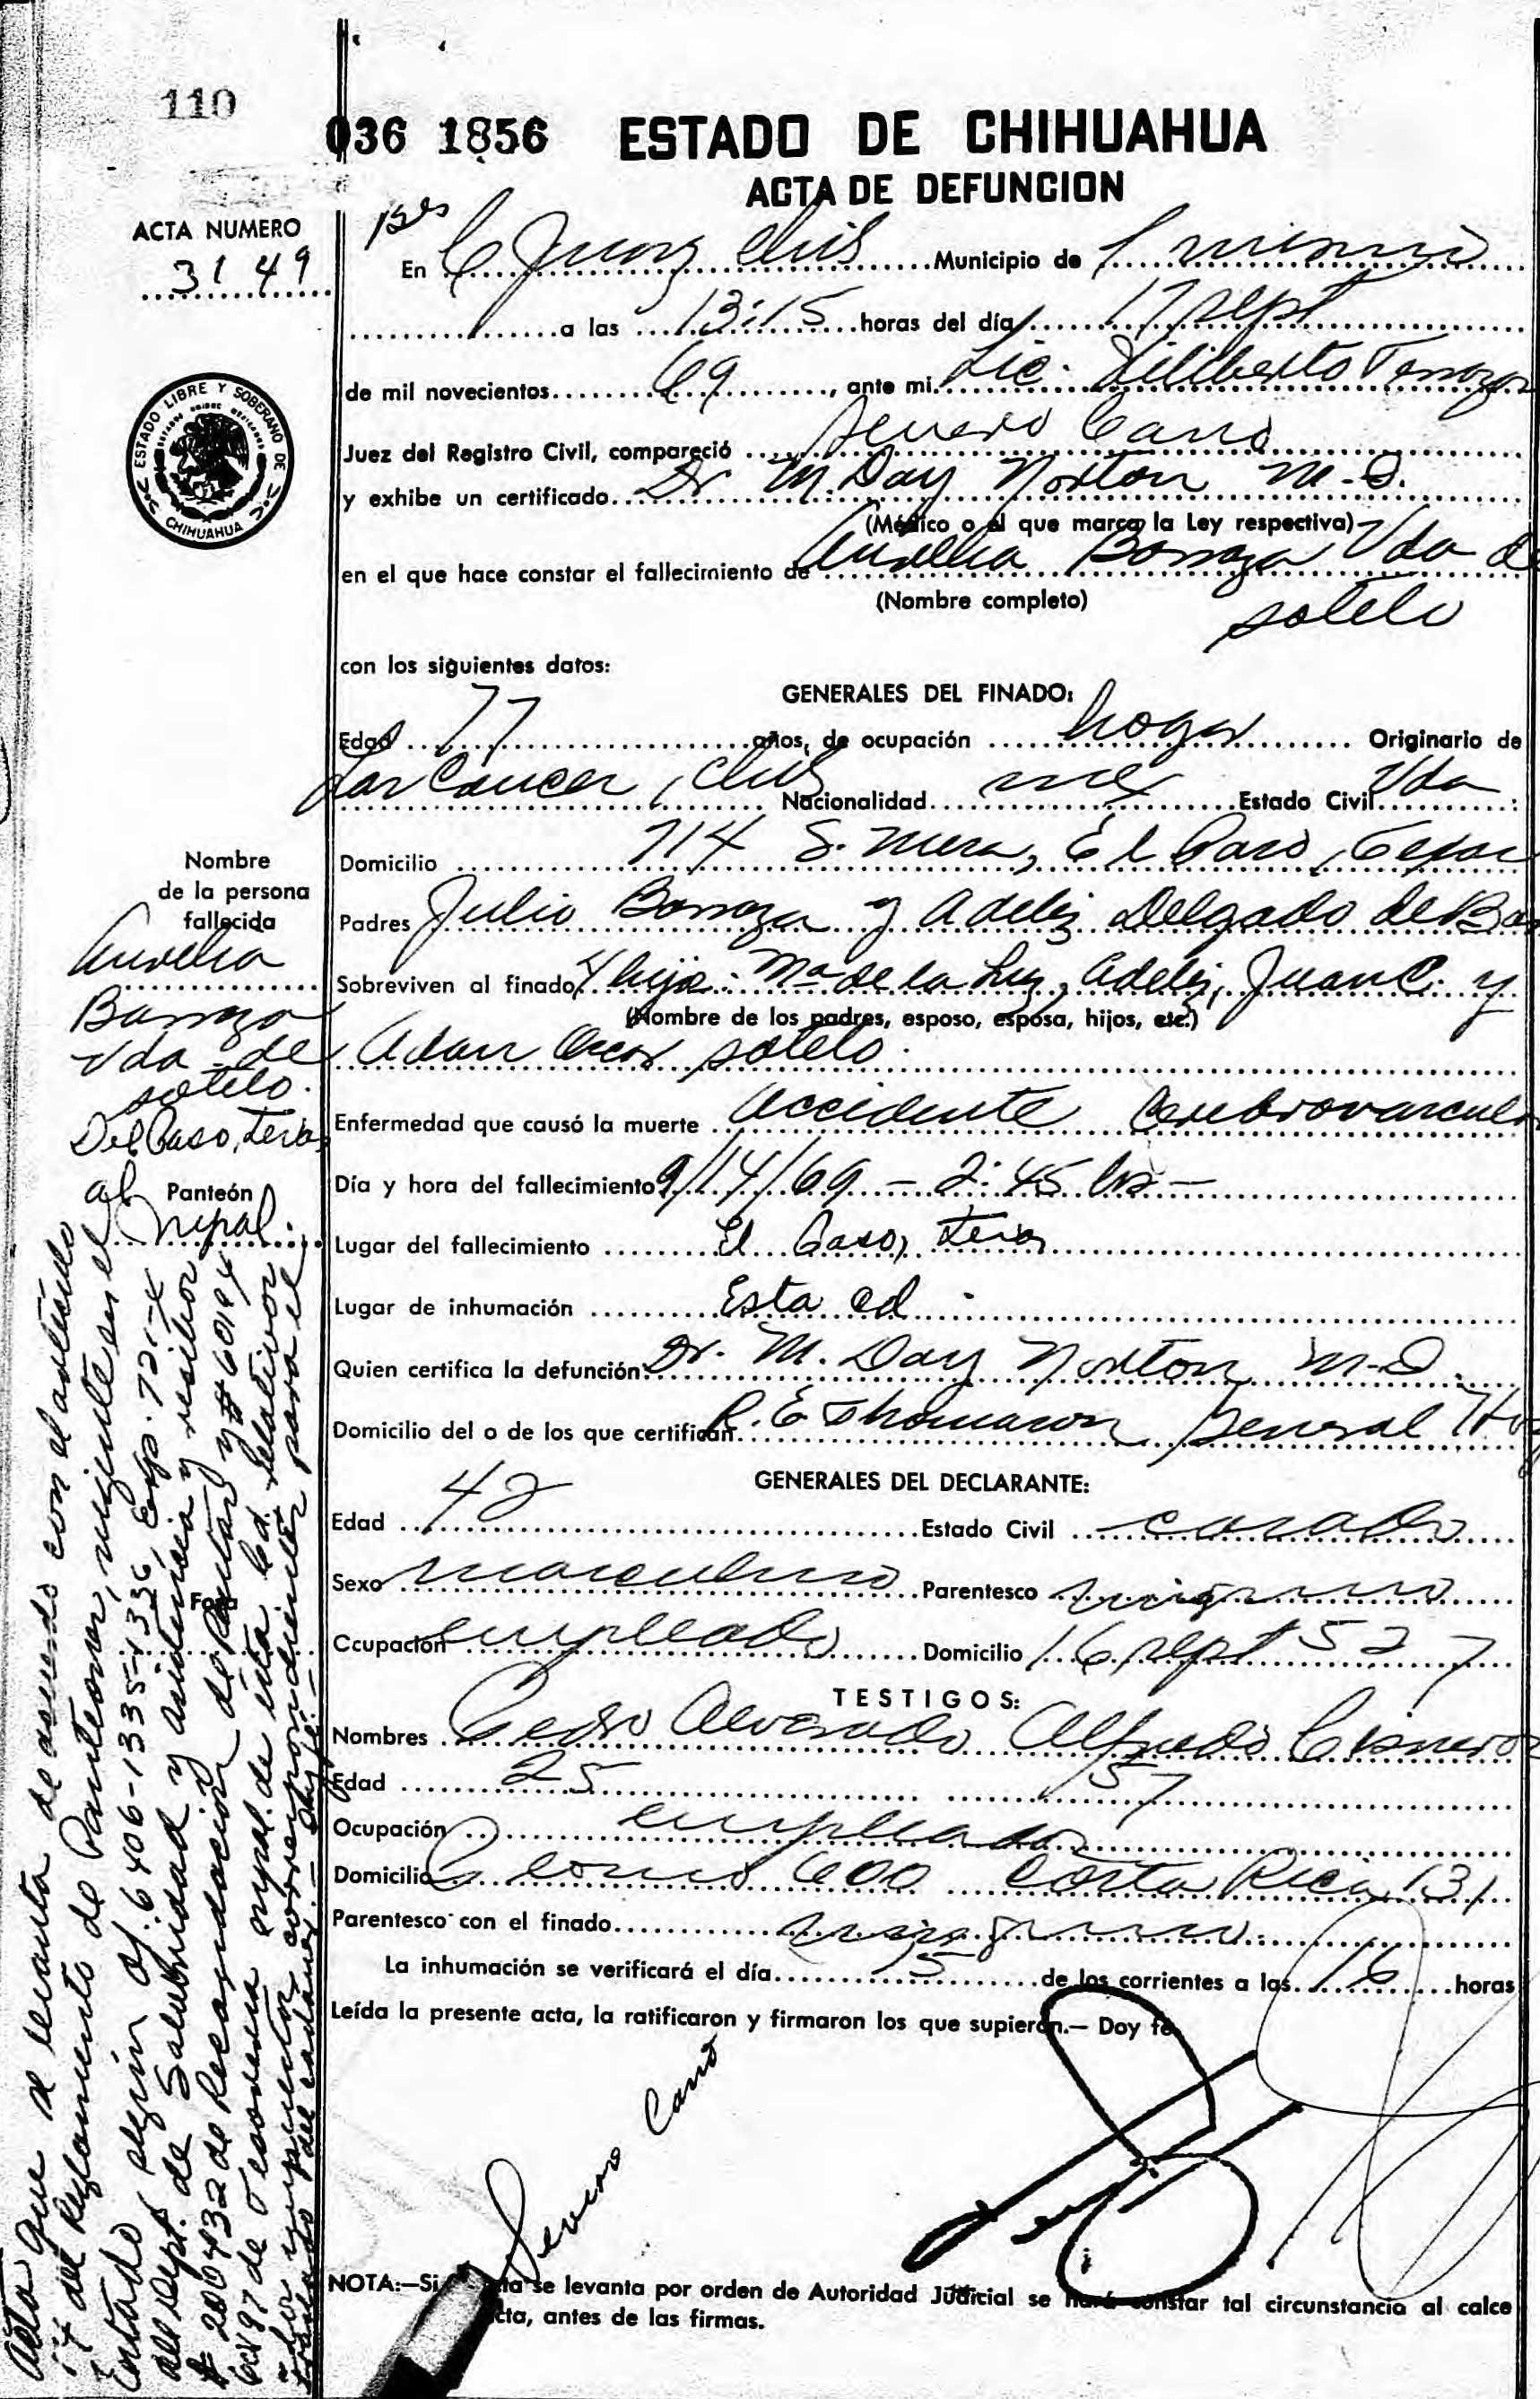 110
036 1856 ESTADO DE CHIHUAHUA
ACTA DE DEFUNCION
ACTA NUMERO
3149
En C Juarez Chih Municipio de
a las 13:15 horas del día 17 sept
de mil novecientos 69, ante mi Lic. Filiberto Terrazas
Juez del Registro Civil, compareció Severo Cano
y exhibe un certificado Dr M. Day Norton M-D.
(Médico o el que marca la Ley respectiva)
en el que hace constar el fallecimiento de Aurelia Barraza Vda de
(Nombre completo)
sotelo
con los siguientes datos:
GENERALES DEL FINADO:
Edad 77 años, de ocupación hogar Originario de
Chih Nacionalidad mex Estado Civil Vda
Domicilio 714 S. Mesa, El Paso, Texas
Padres Julio Barraza y Adela Delgado de
Sobreviven al finado 4 hijos: Ma de la Luz, Adela, Juan C. y
(Nombre de los padres, esposo, esposa, hijos, etc.)
Adan Oscar sotelo.
Enfermedad que causó la muerte Accidente Cerebrovascular
Día y hora del fallecimiento 9/14/69 - 2:45 hs -
Lugar del fallecimiento El Paso, Texas
Lugar de inhumación Esta cd.
Quien certifica la defunción Dr. M. Day Norton M-D.
Domicilio del o de los que certifican R. E Thomason General
GENERALES DEL DECLARANTE:
Edad 42 Estado Civil casado
Sexo masculino Parentesco ninguno
Ocupación empleado Domicilio 16 sept 527
TESTIGOS:
Nombres Pedro Alvarado Alfredo Cisneros
Edad 25 57
Ocupación empleados
Domicilio 600 Costa Rica 131
Parentesco con el finado ninguno.
La inhumación se verificará el día 15 de los corrientes a las 16 horas
Leída la presente acta, la ratificaron y firmaron los que supieron.— Doy fe.
Severo Cano
NOTA:—Si ta se levanta por orden de Autoridad Judicial se hará constar tal circunstancia al calce
cta, antes de las firmas.
ESTADO LIBRE Y SOBERANO DE CHIHUAHUA
Nombre
de la persona
fallecida
Aurelia
Barraza
Vda de
sotelo.
Del Paso, Texas
al Panteón
mpal.
Foja
Acta que se levanta de acuerdo con el articulo
17 del Reglamento de Panteones, vigente en el
Estado según of. 6406-1335-1336, Exp. 721-4
del Dept. de Salubridad y Asistencia y recibos
# 200432 de Recaudación de Rentas y # 60194
de Tesoreria mpal. de esta Cd. relativos
correspondientes para el
traslado del cadaver. - Doy fé. -